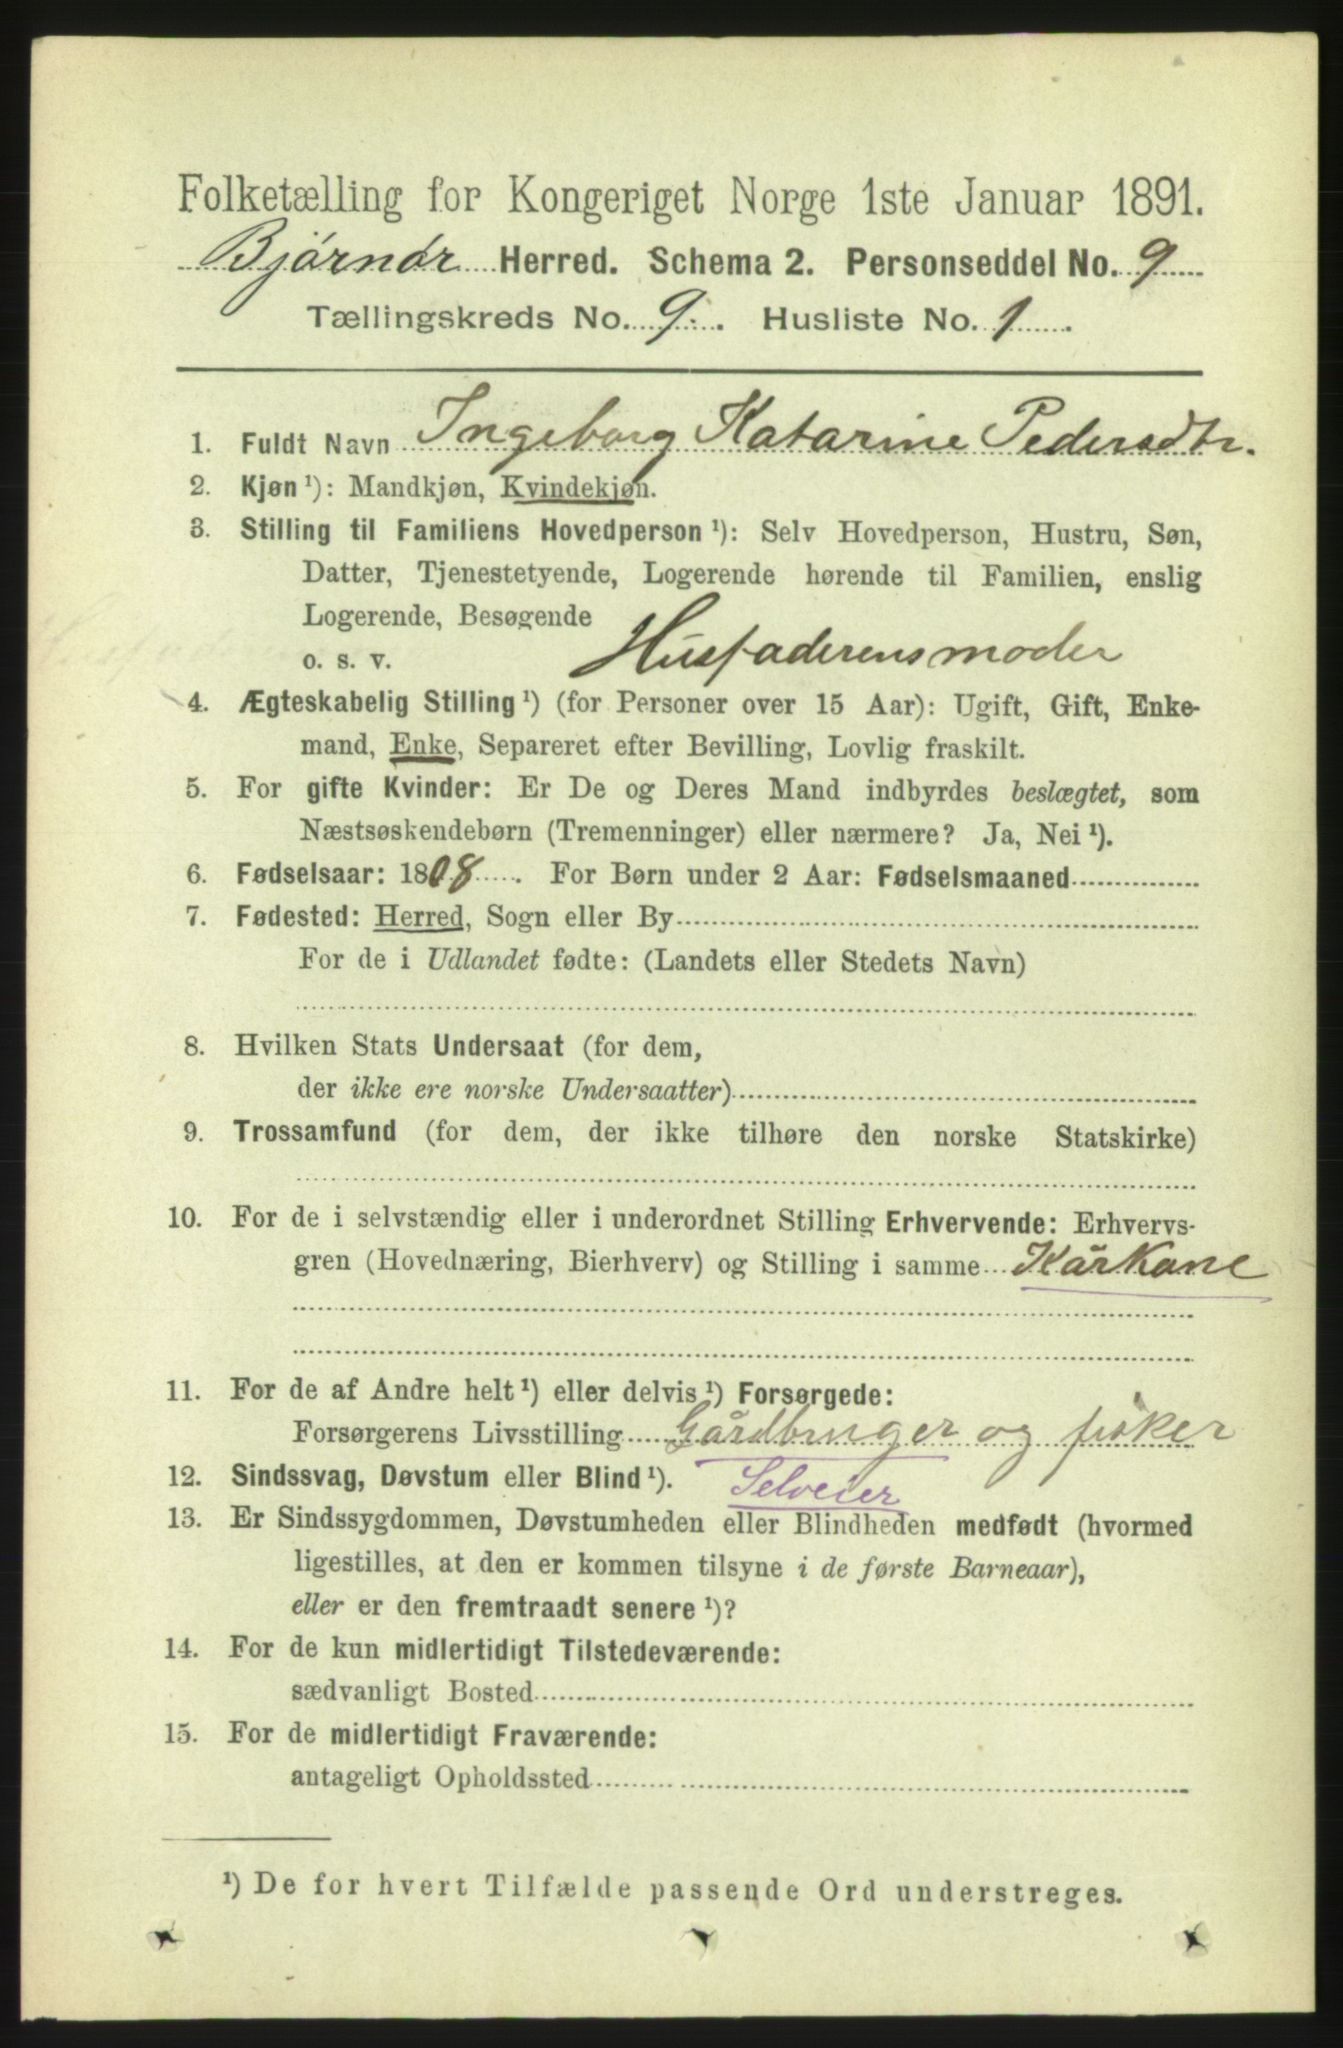 Folketælling for Kongeriget Norge 1ste Januar 1891.
Bjørnør Herred. Schema 2. Personseddel No. 9
Tællingskreds No. 9. Husliste No. 1
1. Fuldt Navn Ingeborg Katarine Pedersdtr.
2. Kjøn ¹): Mandkjøn, Kvindekjøn.
3. Stilling til Familiens Hovedperson ¹): Selv Hovedperson, Hustru, Søn,
Datter, Tjenestetyende, Logerende hørende til Familien, enslig
Logerende, Besøgende
o. s. v. Husfaderens moder
4. Ægteskabelig Stilling ¹) (for Personer over 15 Aar): Ugift, Gift, Enke-
mand, Enke, Separeret efter Bevilling, Lovlig fraskilt.
5. For gifte Kvinder: Er De og Deres Mand indbyrdes beslægtet, som
Næstsøskendebørn (Tremenninger) eller nærmere? Ja, Nei ¹).
6. Fødselsaar: 1808. For Børn under 2 Aar: Fødselsmaaned
7. Fødested: Herred, Sogn eller By
For de i Udlandet fødte: (Landets eller Stedets Navn)
8. Hvilken Stats Undersaat (for dem,
der ikke ere norske Undersaatter)
9. Trossamfund (for dem, der ikke tilhøre den norske Statskirke)
10. For de i selvstændig eller i underordnet Stilling Erhvervende: Erhvervs-
gren (Hovednæring, Bierhverv) og Stilling i samme Kårkone
11. For de af Andre helt ¹) eller delvis ¹) Forsørgede:
Forsørgerens Livsstilling Gårdbruger og fisker
12. Sindssvag, Døvstum eller Blind ¹). Selveier
13. Er Sindssygdommen, Døvstumheden eller Blindheden medfødt (hvormed
ligestilles, at den er kommen tilsyne i de første Barneaar),
eller er den fremtraadt senere ¹)?
14. For de kun midlertidigt Tilstedeværende:
sædvanligt Bosted
15. For de midlertidigt Fraværende:
antageligt Opholdssted
¹) De for hvert Tilfælde passende Ord understreges.